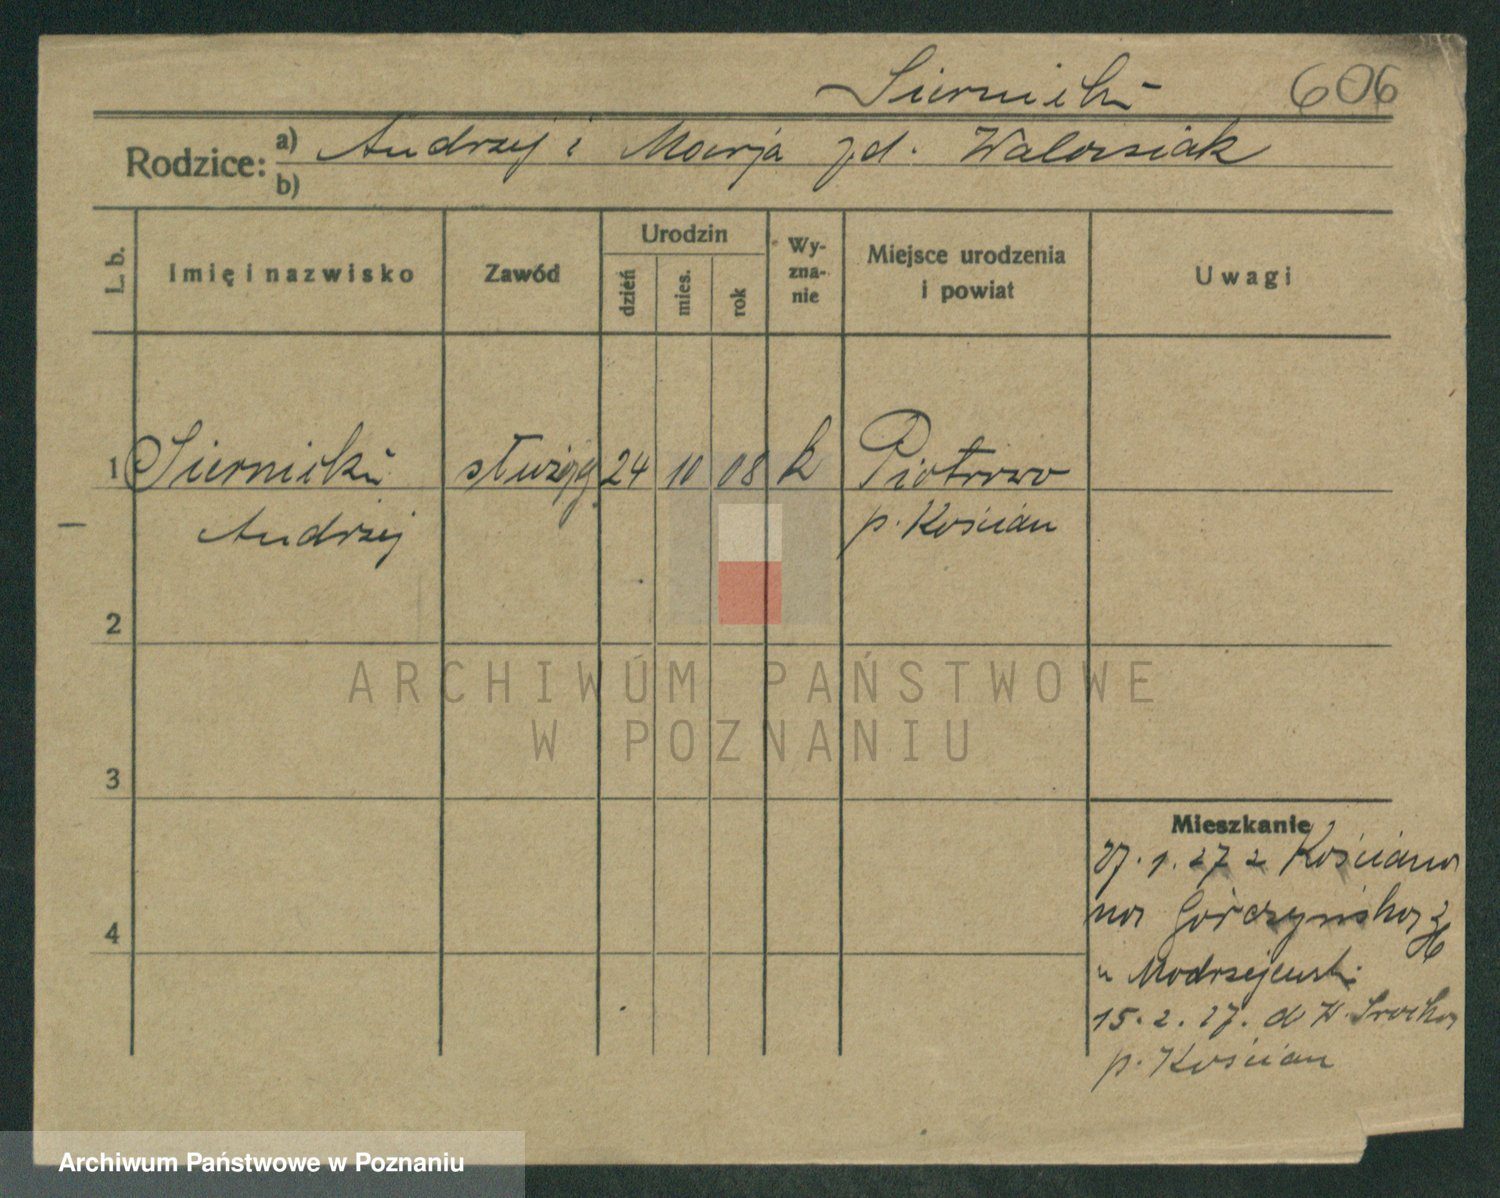 Siernicki 606
Rodzice: a) Andrzej i Marja zd. Walorsiak
b)
L. b.
Imię i nazwisko
Zawód
Urodzin
dzień
mies.
rok
Wy-
zna-
nie
Miejsce urodzenia
i powiat
Uwagi
1 Siernicki służący 24 10 08 k Piotrowo
Andrzej p. Kościan
2
3
4
Mieszkanie
27.1.27 z Kościana
na Górczyńska
u Modrzejewski
15.2.27. d W. Srocko
p. Kościan
ARCHIWUM PAŃSTWOWE
W POZNANIU
Archiwum Państwowe w Poznaniu